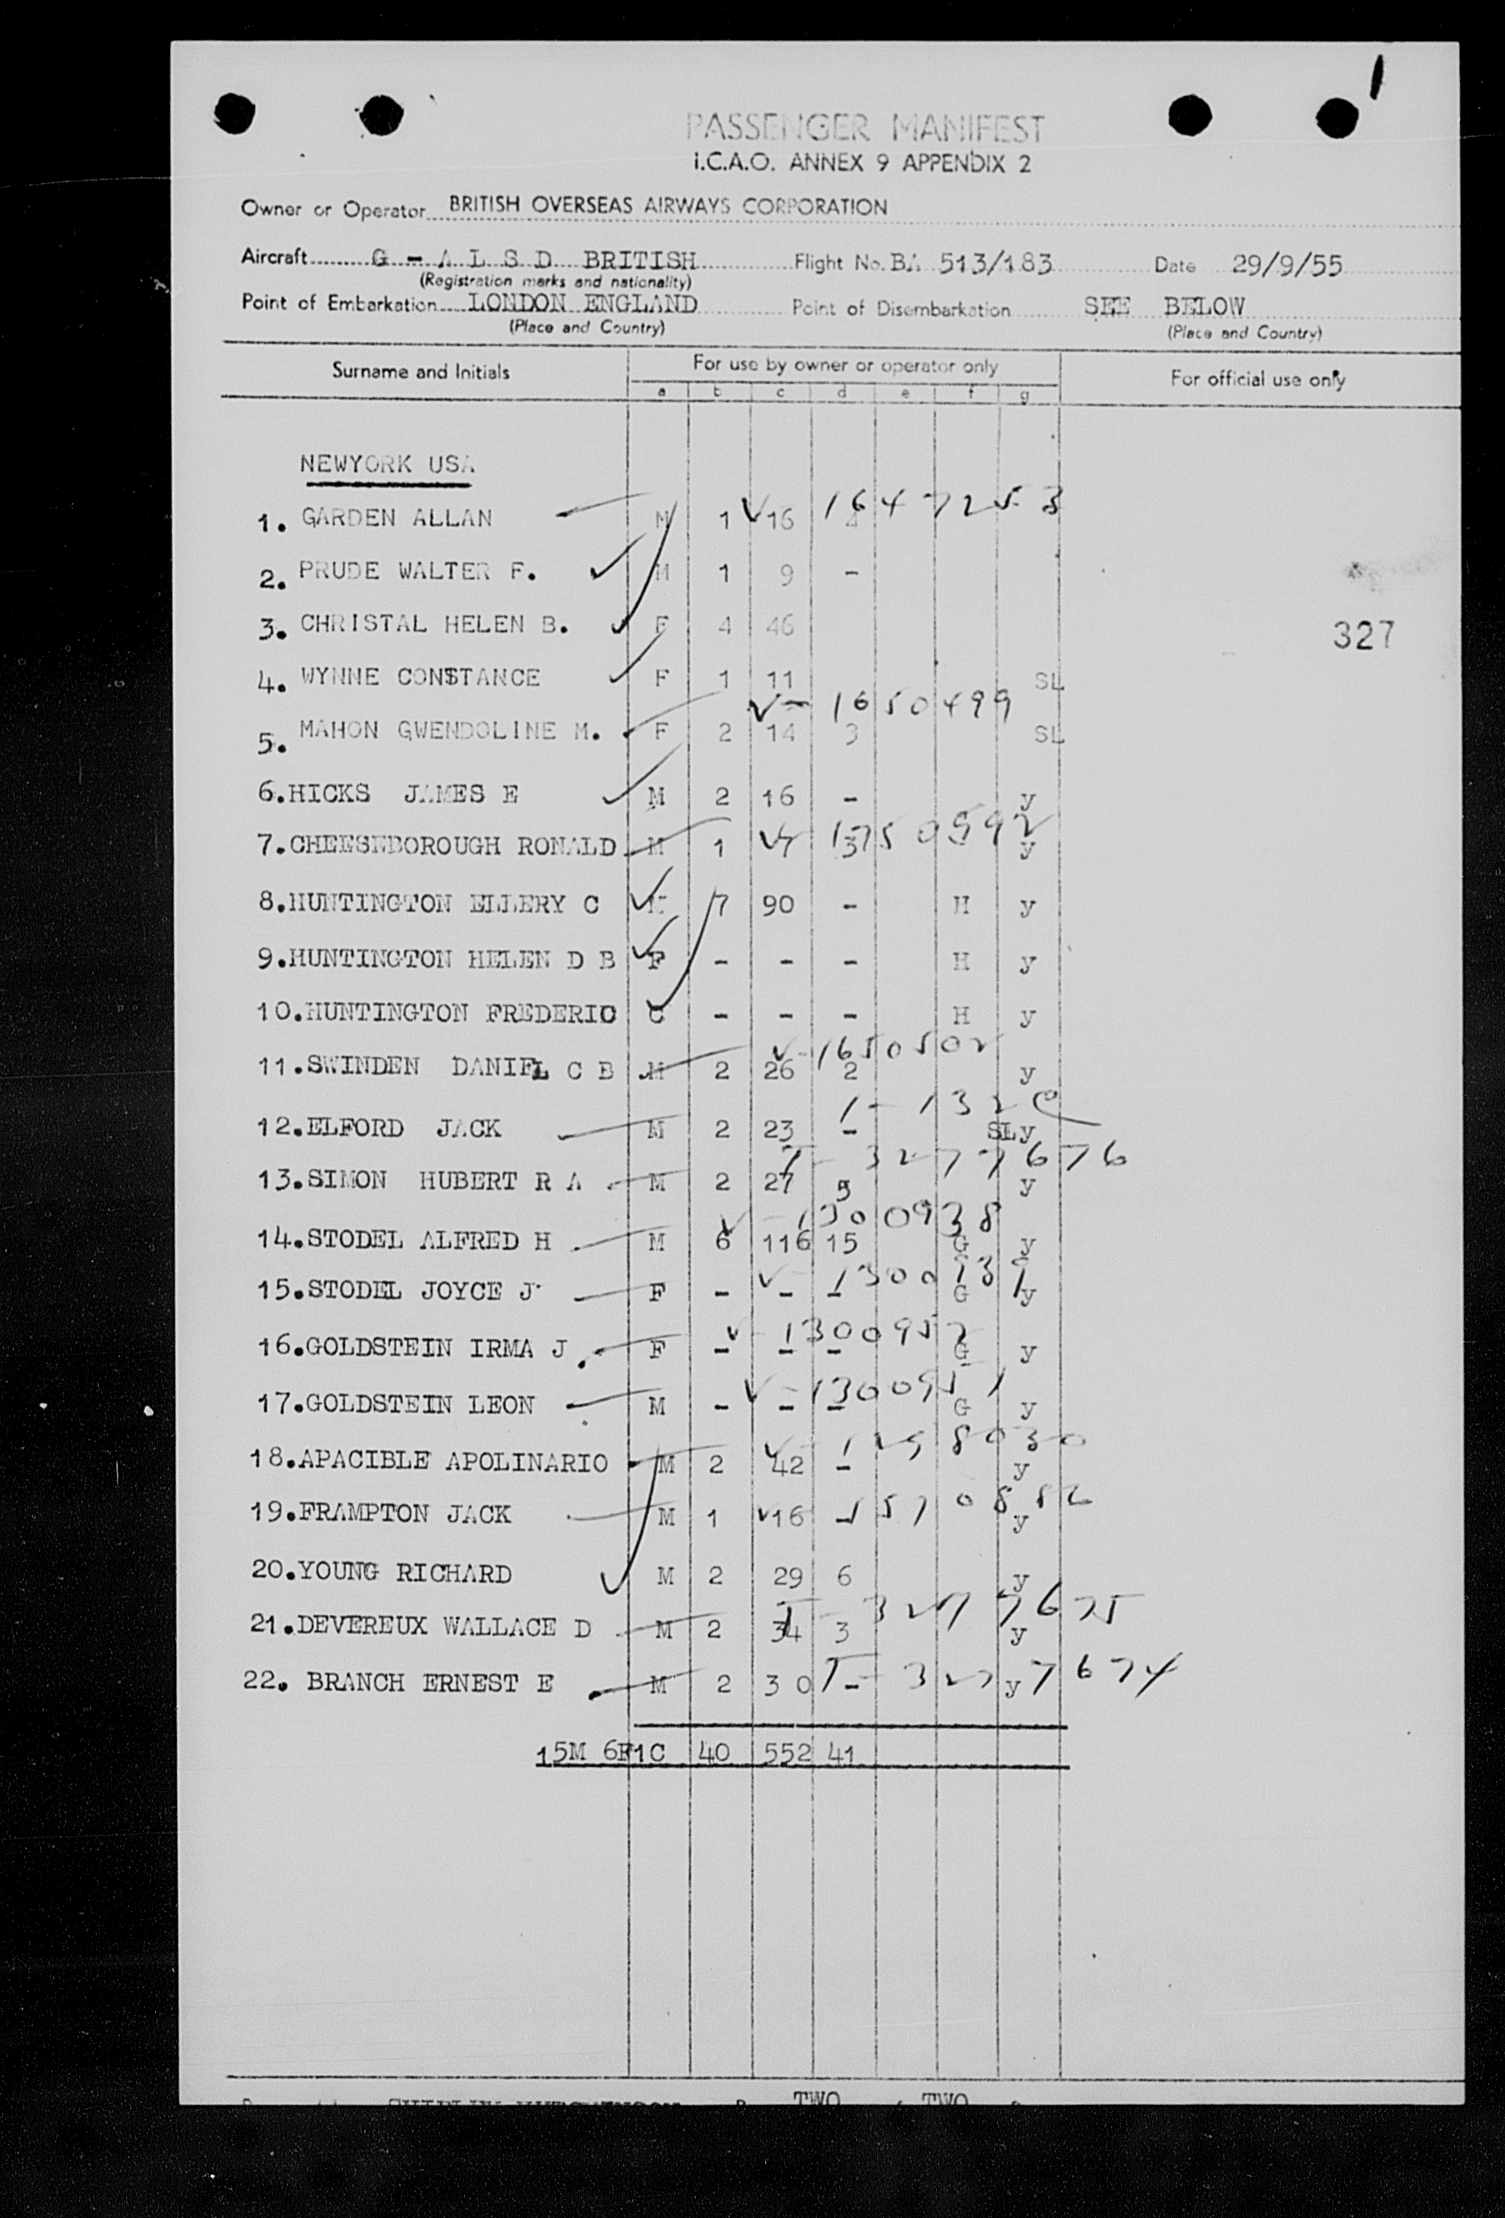 PASSENGER MANIFEST
I.C.A.O. ANNEX 9 APPENDIX 2
Owner or Operator BRITISH OVERSEAS AIRWAYS CORPORATION
Aircraft G - A L S D BRITISH Flight No. BA 513/183 Date 29/9/55
(Registration marks and nationality)
Point of Embarkation LONDON ENGLAND Point of Disembarkation SEE BELOW
(Place and Country) (Place and Country)
Surname and Initials For use by owner or operator only For official use only
a b c d e f g
NEWYORK USA
1. GARDEN ALLAN M 1 16 1647253
2. PRUDE WALTER F. M 1 9 -
3. CHRISTAL HELEN B. F 4 46
327
4. WYNNE CONSTANCE F 1 11 SL
1650499
5. MAHON GWENDOLINE M. F 2 14 3 SL
6. HICKS JAMES E M 2 16 - y
7. CHEESEBOROUGH RONALD M 1 7 y
8. HUNTINGTON ELLERY C M 7 90 - H y
9. HUNTINGTON HELEN D B F - - - H y
10. HUNTINGTON FREDERIC C - - - H y
V-1650502
11. SWINDEN DANIEL C B M 2 26 2 y
12. ELFORD JACK M 2 23 - SLy
T-3277676
13. SIMON HUBERT R A M 2 27 5 y
V-1300938
14. STODEL ALFRED H M 6 116 15 G y
V-1300939
15. STODEL JOYCE J F - - - G y
V-1300952
16. GOLDSTEIN IRMA J. F - - - G y
V-1300951
17. GOLDSTEIN LEON M - - - G y
V-1298030
18. APACIBLE APOLINARIO M 2 42 - y
19. FRAMPTON JACK M 1 16 - y
20. YOUNG RICHARD M 2 29 6 y
T-3277675
21. DEVEREUX WALLACE D M 2 34 3 y
T-3277674
22. BRANCH ERNEST E M 2 30 - y
15M 6F1C 40 552 41
TWO TWO